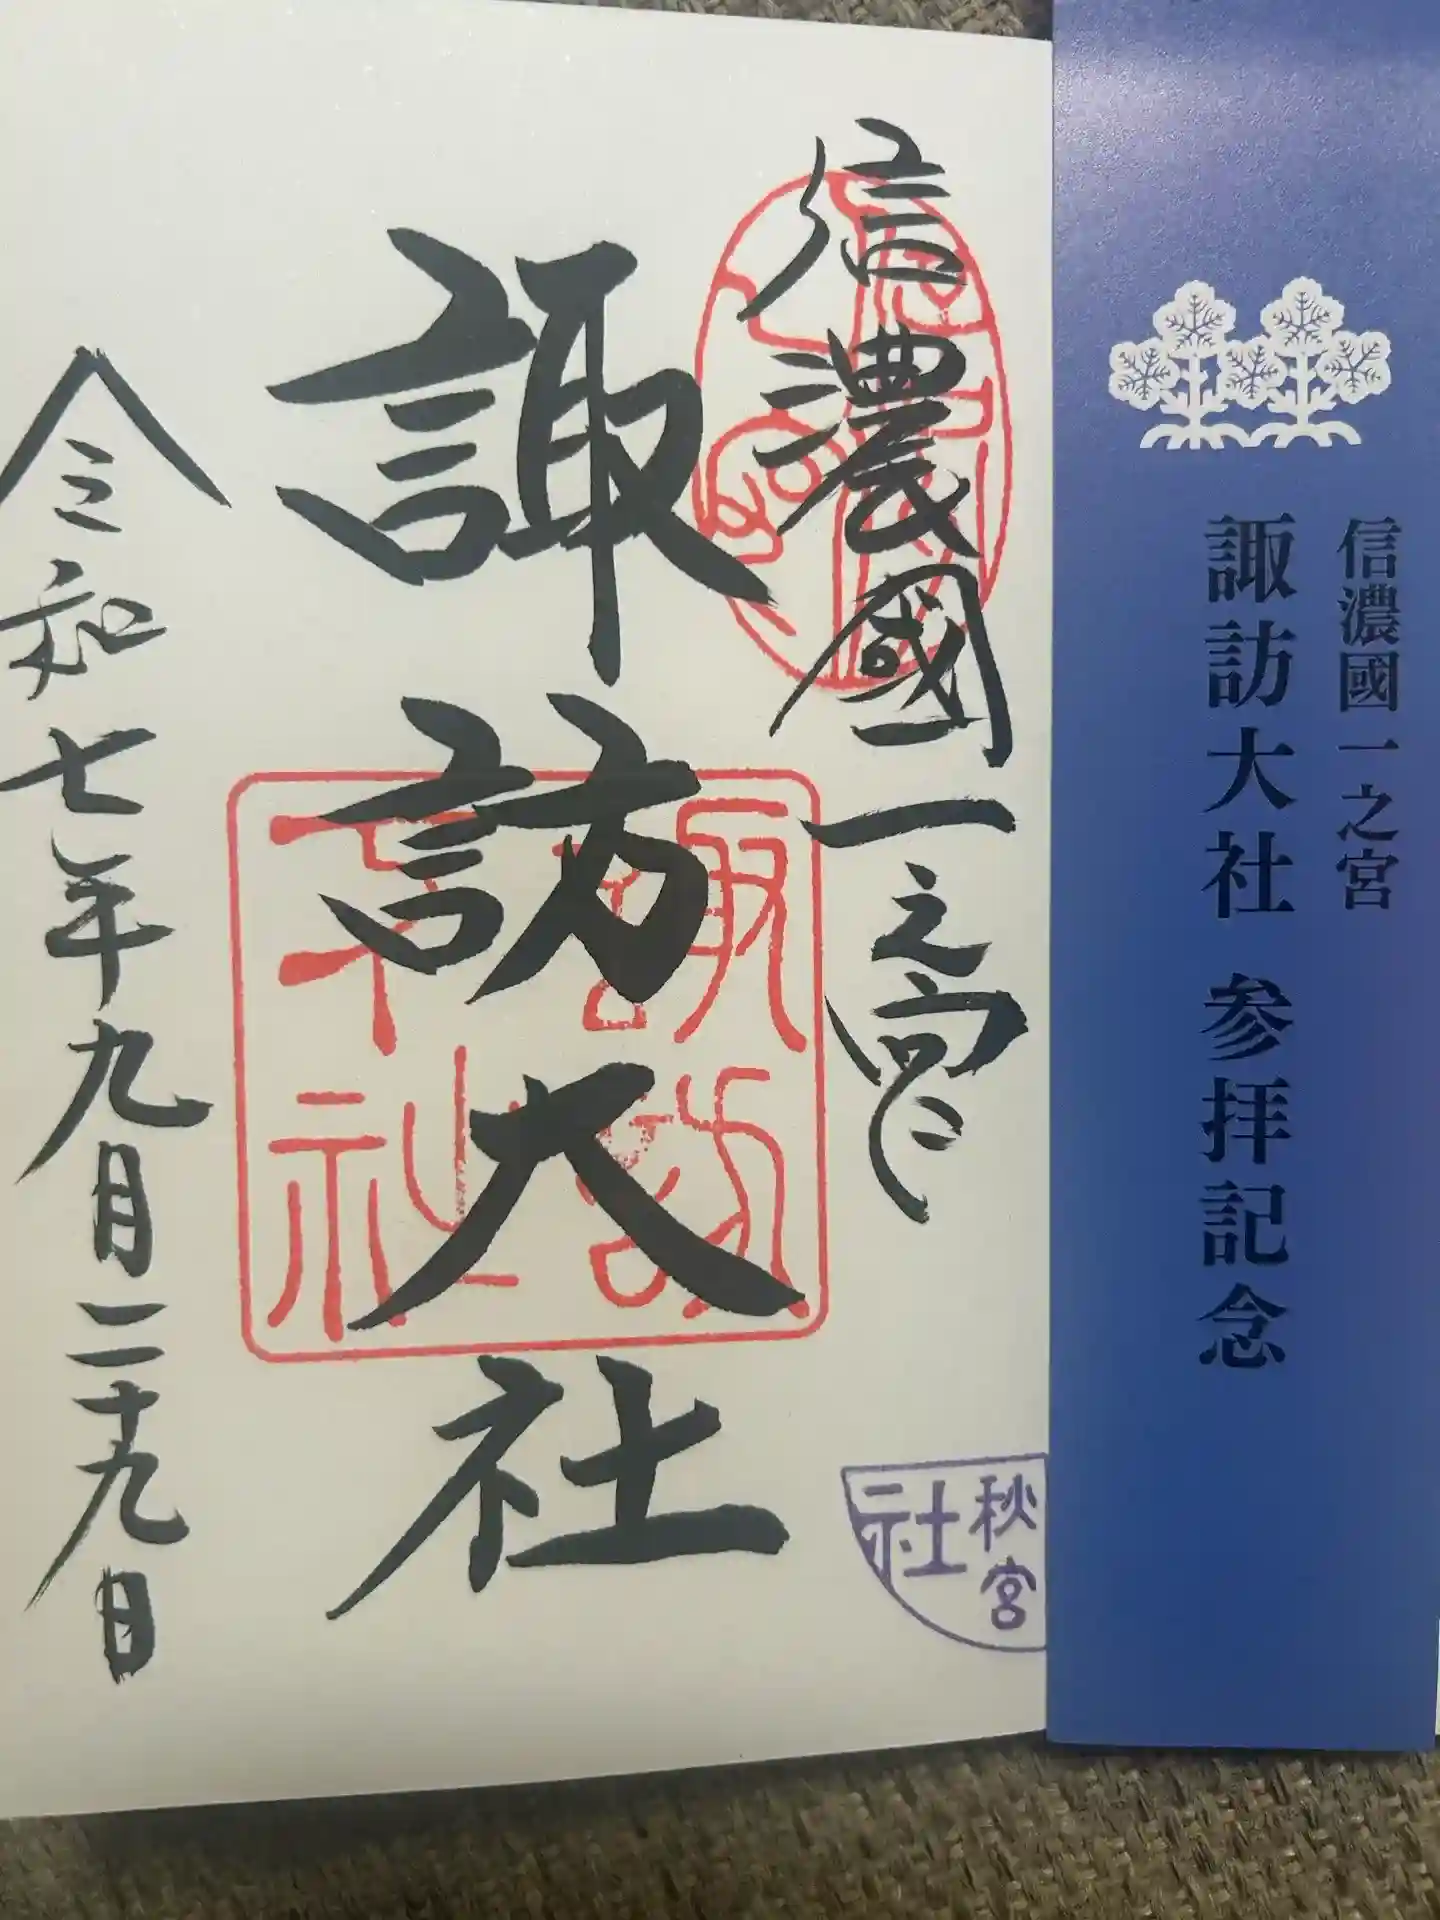 信濃國一之宮
諏訪大社 参拝記念
信濃國一之宮
諏訪大社
令和七年九月二十九日
秋宮
社